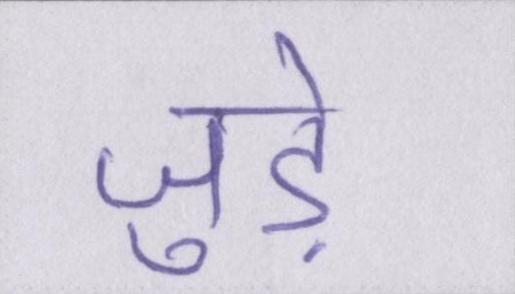 जुड़े